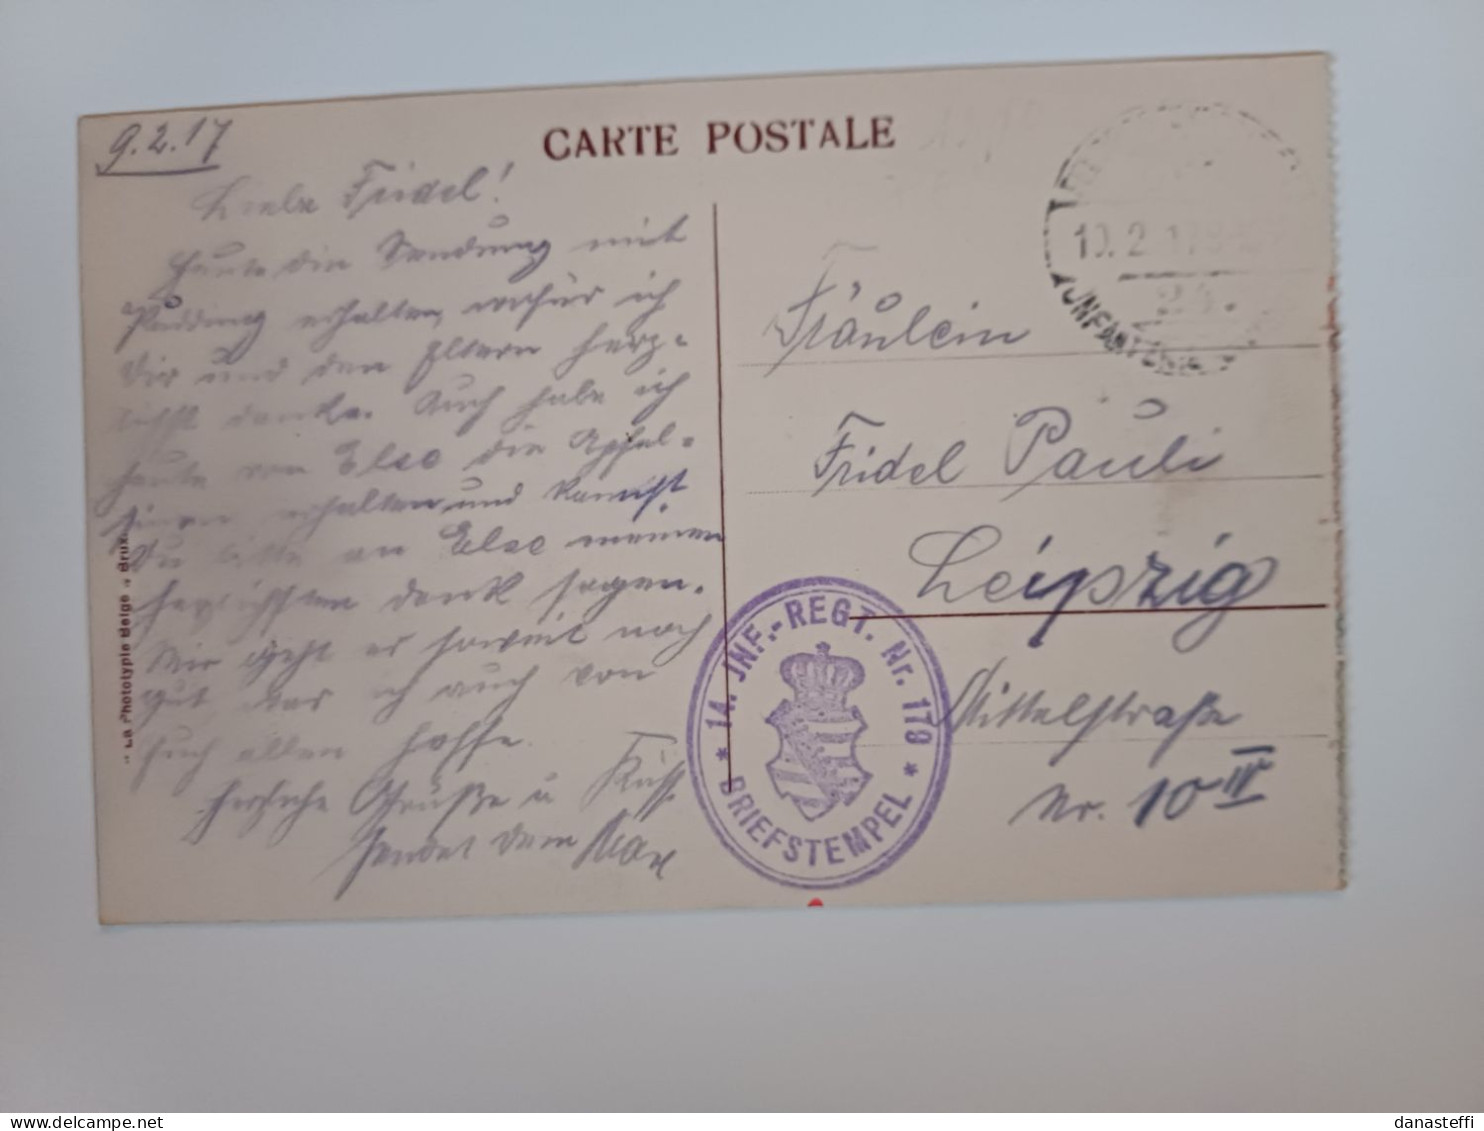 9.2.17
CARTE POSTALE
Liebe Fridel!
Heute die Sendung mit
Pudding erhalten, wofür ich
Dir und den Eltern herz-
lichst danke. Auch habe ich
heute von Else die Apfel-
sinen erhalten und kannst
Du bitte an Else meinen
herzlichsten Dank sagen.
Mir geht es soweit noch
gut, was ich auch von
Euch allen hoffe.
Herzliche Grüße u. Kuss
sendet Dein Max
10.2.17
INFANTERIE
Fräulein
Fridel Pauli
Leipzig
Mittelstraße
Nr. 10 IV
* 14. INF.-REGT. Nr. 179 *
BRIEFSTEMPEL
La Phototypie Belge
www.delcampe.net
danasteffi